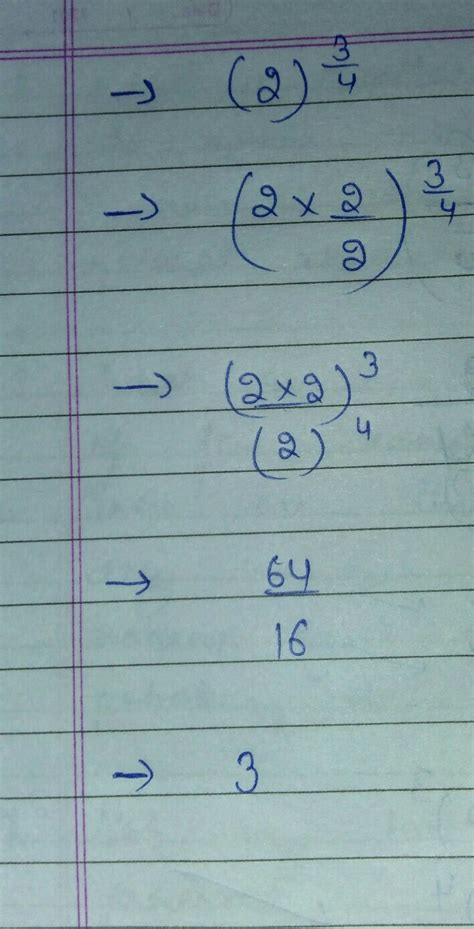 → (2)^(3/4)
→ (2 × 2/2)^(3/4)
→ (2×2)^3 / (2)^4
→ 64/16
→ 3